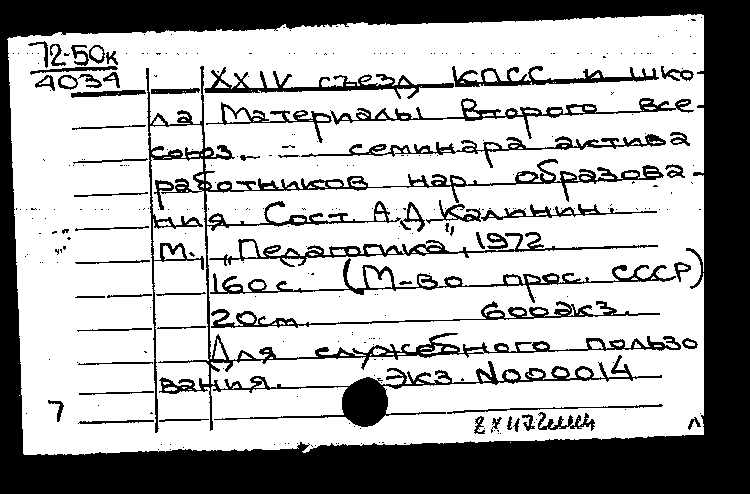 72-50к
4034
XXIV съезд КПСС и шко-
ла. Материалы Второго все-
союз. - семинара актива
работников нар. образова-
ния. Сост. А.Д. Калинин.
М., „Педагогика", 1972.
160 с. (М-во прос. СССР)
20 см. 600 экз.
Для служебного пользо
вания. Экз. N000014
7